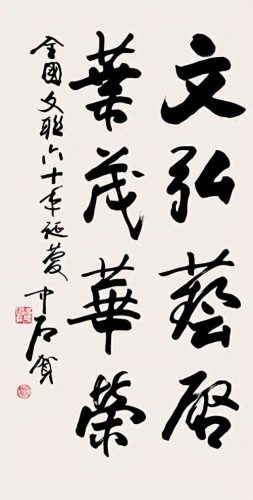 文弘藝啓
葉茂華榮
全國文聯六十年誕慶
中石賀